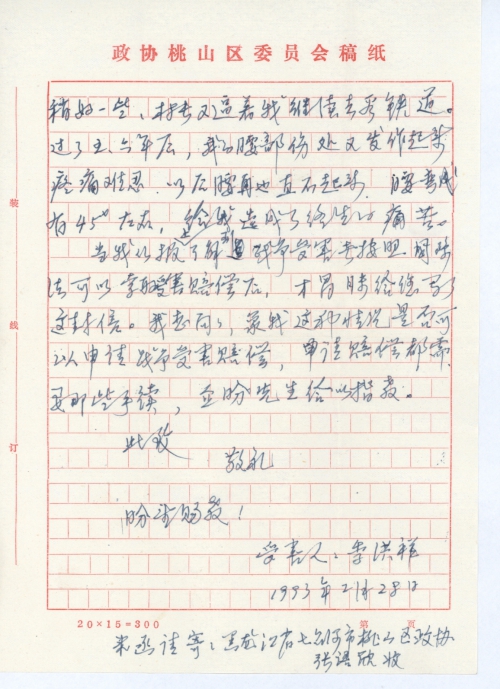 政协桃山区委员会稿纸
稍好一些，材长又逼着我继续去看铁道。
过了五、六年后，我的腰部伤处又发作起来
疼痛难忍，以后腰再也直不起来，腰弯成
有45°左右，给我造成了终生的痛苦。
当我从报上了解到战争受害者按照国际
法可以索取受害赔偿后，才冒昧给您写了
这封信。我想问问，象我这种情况是否可
以申请战争受害赔偿，申请赔偿都需
要那些手续，企盼先生给以指教。
此致
敬礼
盼望赐教！
受害人：李洪祥
1993年2月28日
20×15=300
第 页
来函请寄：黑龙江省七台河市桃山区政协
张 欣收
装
线
订